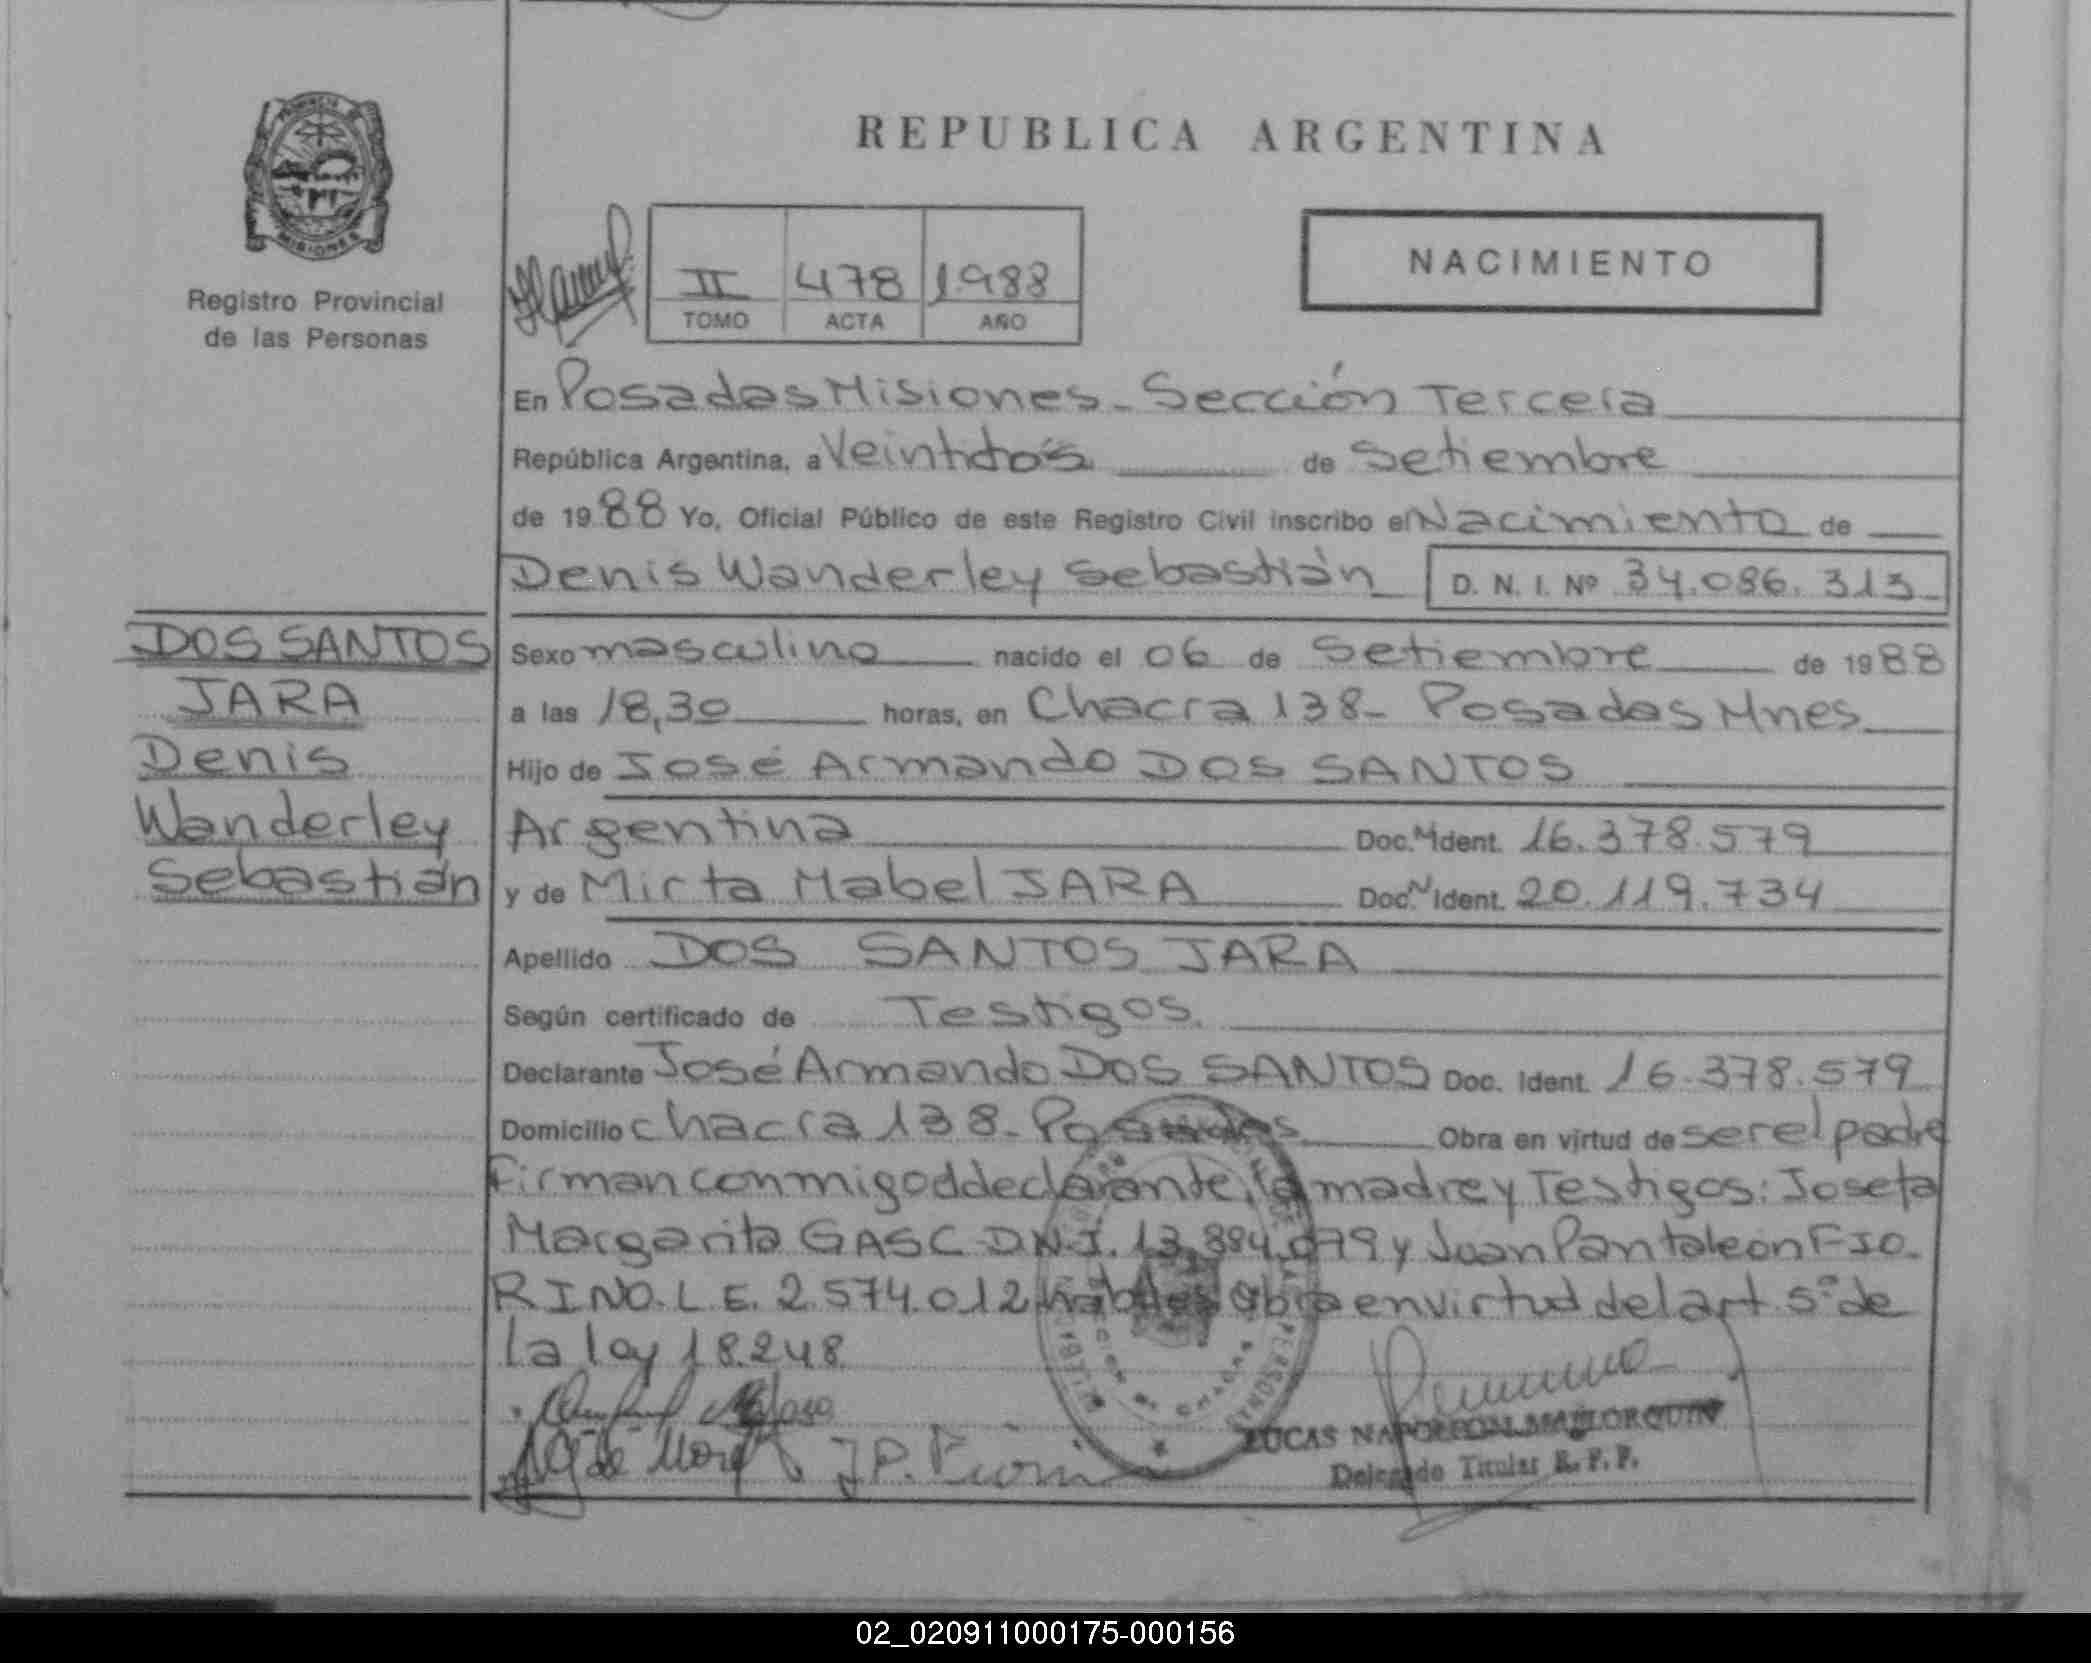 PROVINCIA DE
MISIONES
Registro Provincial
de las Personas
REPUBLICA ARGENTINA
II 478 1988
TOMO ACTA AÑO
NACIMIENTO
En Posadas Misiones - Sección Tercera
República Argentina, a Veintidós de Setiembre
de 1988 Yo, Oficial Público de este Registro Civil inscribo el Nacimiento de
Denis Wanderley Sebastián D. N. I. Nº 34.086.313
DOS SANTOS
JARA
Denis
Wanderley
Sebastián
Sexo masculino nacido el 06 de Setiembre de 1988
a las 18,30 horas, en Chacra 138 - Posadas Mnes
Hijo de José Armando DOS SANTOS
Argentina Doc. Ident. 16.378.579
y de Mirta Mabel JARA Doc. Ident. 20.119.734
Apellido DOS SANTOS JARA
Según certificado de Testigos.
Declarante José Armando DOS SANTOS Doc. Ident. 16.378.579
Domicilio chacra 138 - Posadas Obra en virtud de ser el padre
Firman conmigo el declarante, la madre y Testigos: Josefa
Margarita GASC D.N.I. 13.894.079 y Juan Pantaleón FIO-
RINO. L.E. 2.574.012 habiles obra en virtud del art. 5º de
la ley 18.248
J.P. Fiorino
LUCAS NAPOLEON MALLORQUIN
Delegado Titular R. P. P.
02_020911000175-000156